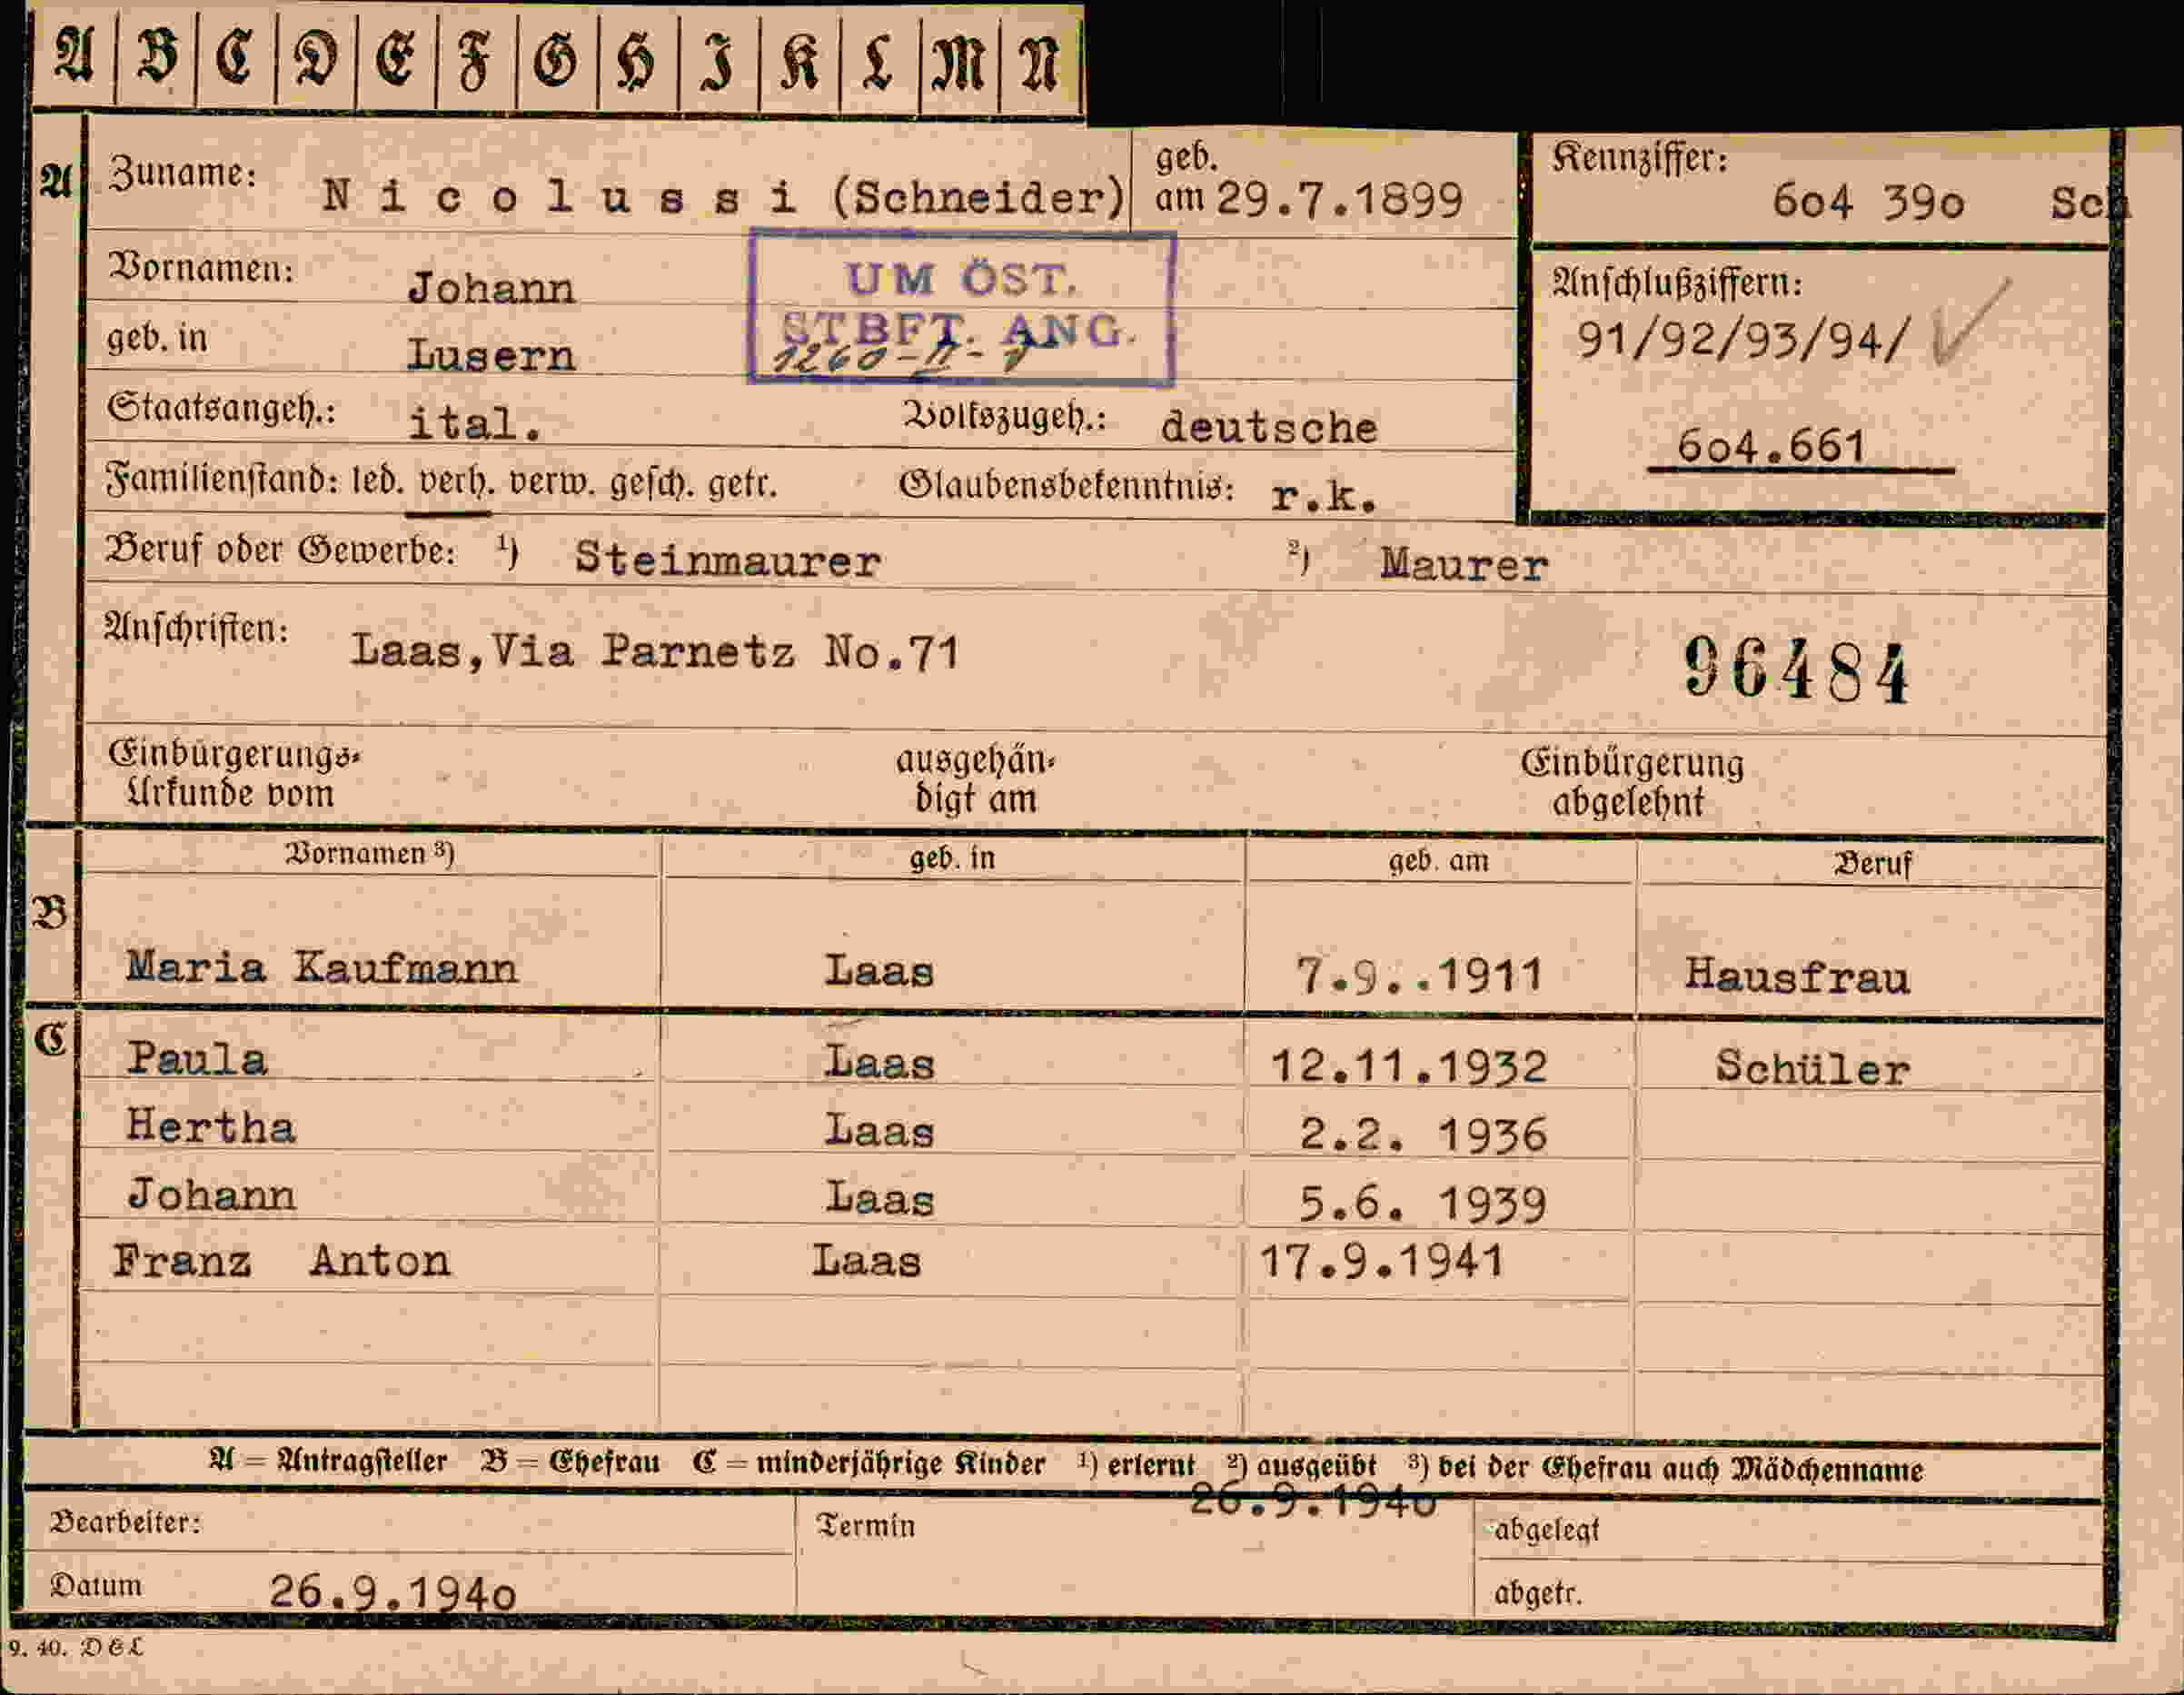 A B C D E F G H I K L M N
A Zuname: Nicolussi (Schneider) geb. am 29.7.1899 Kennziffer: 6o4 39o Sch
Vornamen: Johann
UM ÖST.
STBFT. ANG.
1260-II-
geb. in Lusern
Anschlußziffern:
91/92/93/94/
6o4.661
Staatsangeh.: ital. Volkszugeh.: deutsche
Familienstand: led. verh. verw. gesch. getr. Glaubensbekenntnis: r.k.
Beruf oder Gewerbe: 1) Steinmaurer 2) Maurer
Anschriften: Laas,Via Parnetz No.71
96484
Einbürgerungs-Urkunde vom ausgehändigt am Einbürgerung abgelehnt
Vornamen 3) geb. in geb. am Beruf
B Maria Kaufmann Laas 7.9..1911 Hausfrau
C Paula Laas 12.11.1932 Schüler
Hertha Laas 2.2. 1936
Johann Laas 5.6. 1939
Franz Anton Laas 17.9.1941
A = Antragsteller B = Ehefrau C = minderjährige Kinder 1) erlernt 2) ausgeübt 3) bei der Ehefrau auch Mädchenname
Bearbeiter: Termin 26.9.194o abgelegt
Datum 26.9.194o abgetr.
9. 40. D E L